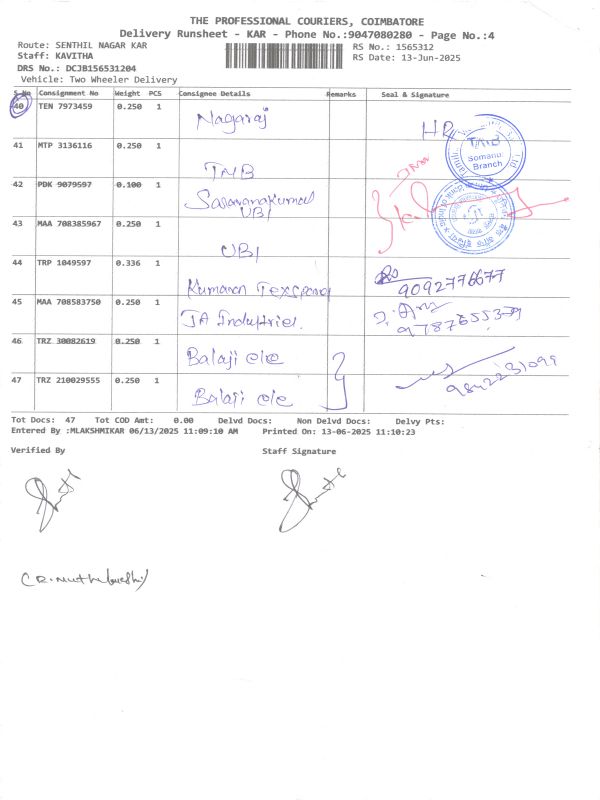 THE PROFESSIONAL COURIERS, COIMBATORE
Delivery Runsheet - KAR - Phone No.:9047080280 - Page No.:4
Route: SENTHIL NAGAR KAR
RS No.: 1565312
Staff: KAVITHA
RS Date: 13-Jun-2025
DRS No.: DCJB156531204
Vehicle: Two Wheeler Delivery
S.No Consignment No Weight PCS Consignee Details Remarks Seal & Signature
40 TEN 7973459 0.250 1 Nagaraj HR
41 MTP 3136116 0.250 1 TMB
TMB
Somanur
Branch
42 PDK 9079597 0.100 1 Saravanakumar
UBI
43 MAA 708385967 0.250 1 UBI
44 TRP 1049597 0.336 1 Kumaran 9092776677
45 MAA 708583750 0.250 1 JA Industries.
46 TRZ 30082619 0.250 1 Balaji
47 TRZ 210029555 0.250 1 Balaji
Tot Docs: 47 Tot COD Amt: 0.00 Delvd Docs: Non Delvd Docs: Delvy Pts:
Entered By :MLAKSHMIKAR 06/13/2025 11:09:10 AM Printed On: 13-06-2025 11:10:23
Verified By Staff Signature